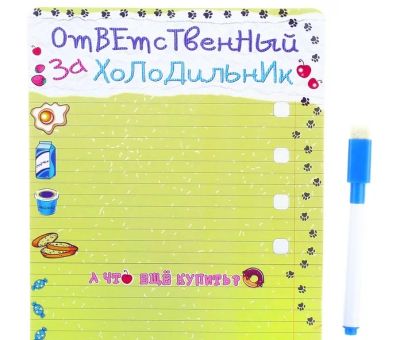 ОтВЕтсТвенНый
За ХоЛоДилЬнИк
А ЧТО ЕЩЁ КУПИТЬ?